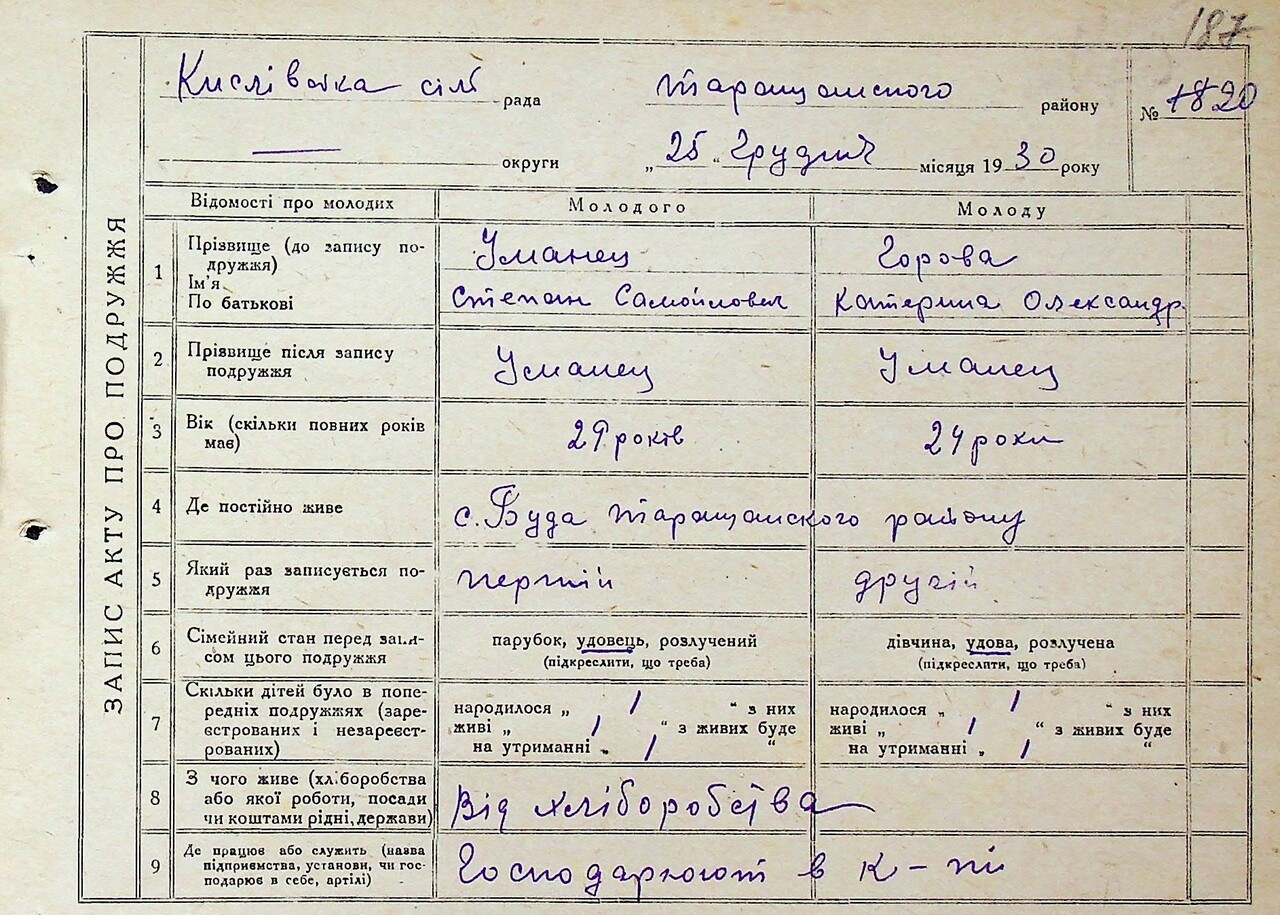 187
Кислівська сіль рада Таращанского району № 1820
— округи „25“ Грудня місяця 1930 року
ЗАПИС АКТУ ПРО ПОДРУЖЖЯ
Відомості про молодих Молодого Молоду
1 Прізвище (до запису по-
дружжя)
Ім'я
По батькові
Уманец Горова
Степан Самойлович Катерина Олександр.
2 Прізвище після запису
подружжя
Уманец Уманец
3 Вік (скільки повних років
має)
29 років 24 роки
4 Де постійно живе
с. Буда Таращанского району
5 Який раз записується по-
дружжя
перший другій
6 Сімейний стан перед запи-
сом цього подружжя
парубок, удовець, розлучений дівчина, удова, розлучена
(підкреслити, що треба) (підкреслити, що треба)
7 Скільки дітей було в попе-
редніх подружжях (заре-
єстрованих і незареєст-
рованих)
народилося „ 1 “ з них народилося „ 1 “ з них
живі „ 1 “ з живих буде живі „ 1 “ з живих буде
на утриманні „ 1 “ на утриманні „ 1 “
8 З чого живе (хліборобства
або якої роботи, посади
чи коштами рідні, держави)
Від хліборобства
9 Де працює або служить (назва
підприємства, установи, чи гос-
подарює в себе, артілі)
Господарюют в К-пі